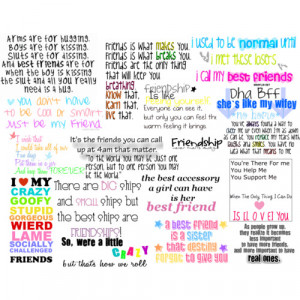 Arms are for hugging.
Boys are for kissing.
Sluts are for dissing.
And best friends are for
when the boy is kissing
the slut and all you really
need is a hug.
Friends is what makes you.
Friends is what breaks you.
Friends are the only thing
that will keep you
breathing.
know that.
learn that.
live that.
I used to be normal until
I met these losers
I call my best friends
Friendship
is like
Everyone can see it,
but only you can feel the
warm feeling it brings.
Dha Bff
she's like my wifey
you don't have
to be cool or smart
Just be my friend.
It's the friends you can call
up at 4am that matter.
Friendship
To the world you may be just
one person, but to one person
you may be the world.
I ♥ MY
CRAZY
GOOFY
STUPID
GORGEOUS
WIERD
LAME
SOCIALLY
CHALLENGED
FRIENDS
There are BIG ships
and small ships but
the best ships are
FRIENDSHIPS!
So, we're a little
CRAZY
but that's how we roll
the best accessory
a girl can have
is her
best friend
a best friend
is a sister
that destiny
forgot to give you
You're There For Me
You Help Me
You Support Me
When The Only Thing I Can Do
Is LOVE YOU
As people grow up,
they realize it becomes
less important
to have more friends,
and more important to have
real ones.